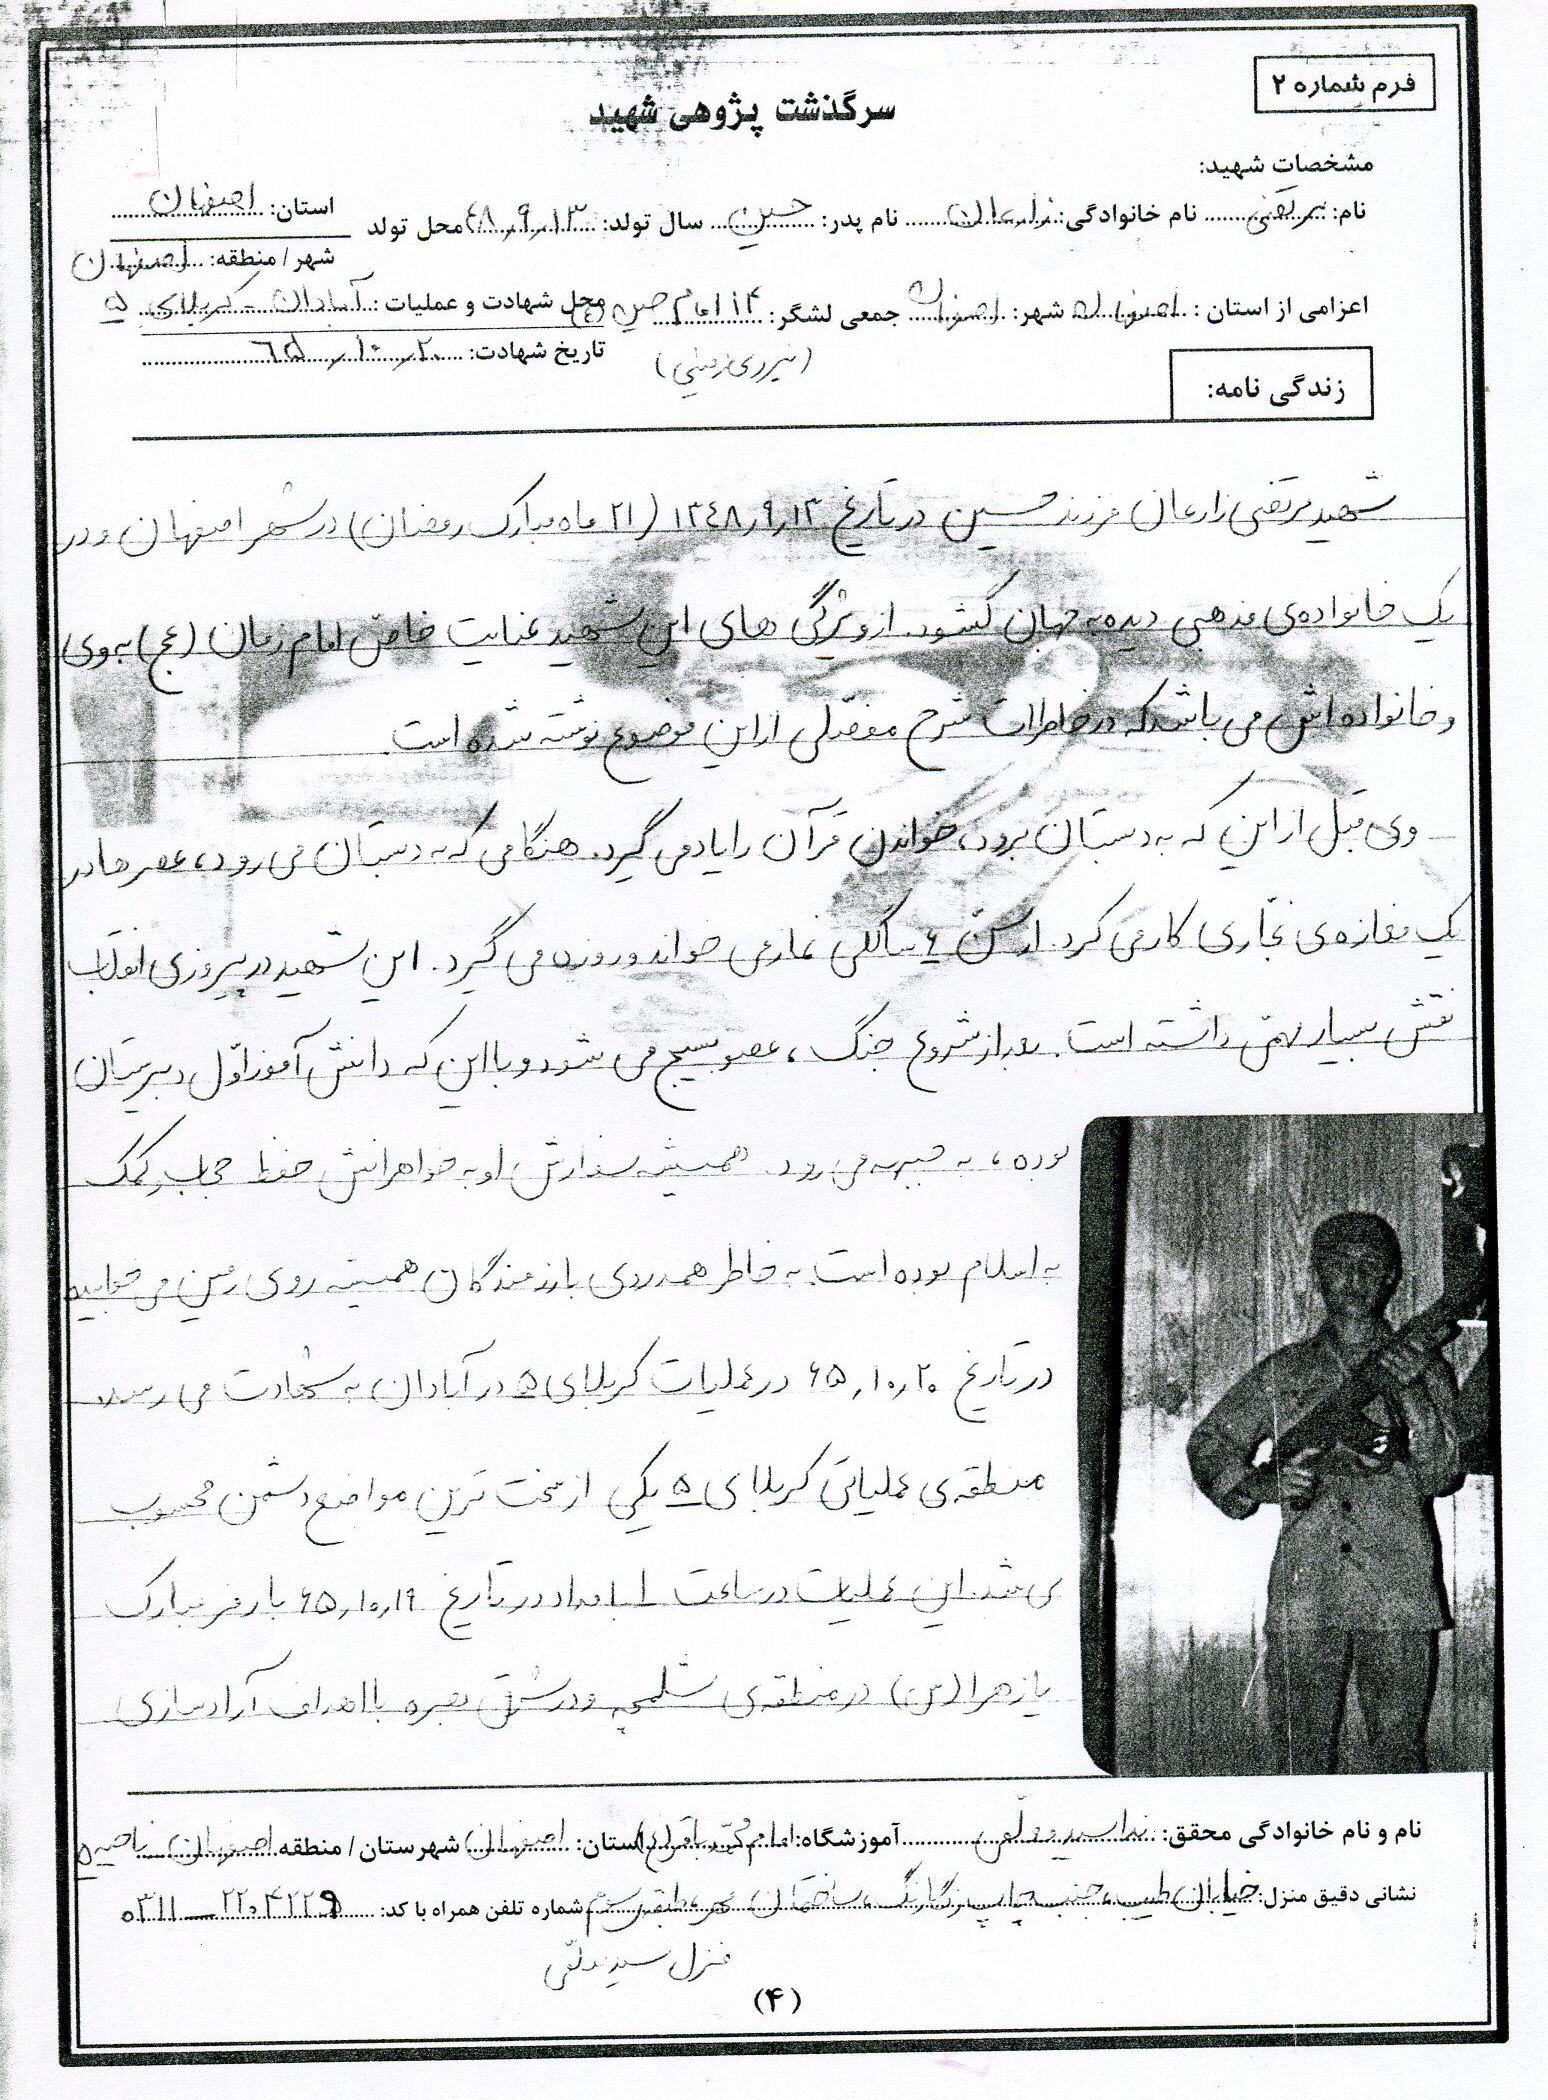 فرم شماره ۲
سرگذشت پژوهی شهید
مشخصات شهید:
نام: مرتضی نام خانوادگی: زارعان نام پدر: حسین سال تولد: ۴۸٫۹٫۱۳ محل تولد استان: اصفهان
شهر / منطقه: اصفهان
اعزامی از استان : اصفهان شهر: اصفهان جمعی لشگر: ۱۴ امام حسین (ع) محل شهادت و عملیات : آبادان - کربلای ۵
(نیروی زمینی) تاریخ شهادت: ۶۵٫۱۰٫۲۰
زندگی نامه:
شهید مرتضی زارعان فرزند حسین در تاریخ ۱۳۴۸٫۹٫۱۳ (۲۱ ماه مبارک رمضان) در شهر اصفهان و در
یک خانواده‌ی مذهبی دیده به جهان گشود. از ویژگی های این شهید عنایت خاص امام زمان (عج) به وی
و خانواده اش می باشد که در خاطرات شرح مفصّلی از این موضوع نوشته شده است.
وی قبل از این که به دبستان برود، خواندن قرآن را یاد می گیرد. هنگامی که به دبستان می رود، عصرها در
یک مغازه‌ی نجّاری کار می کرد. از سنّ ۶ سالگی نماز می خواند و روزه می گیرد. این شهید در پیروزی انقلاب
نقش بسیار مهمّی داشته است. بعد از شروع جنگ ، عضو بسیج می شود و با این که دانش آموز اوّل دبیرستان
بوده ، به جبهه می رود. همیشه سفارش او به خواهرانش حفظ حجاب و کمک
به اسلام بوده است. به خاطر همدردی با رزمندگان همیشه روی زمین می خوابیده
در تاریخ ۶۵٫۱۰٫۲۰ در عملیات کربلای ۵ در آبادان به شهادت می رسد.
منطقه‌ی عملیاتی کربلای ۵ یکی از سخت ترین مواضع دشمن محسوب
می شد. این عملیات در ساعت ۱ بامداد در تاریخ ۶۵٫۱۰٫۱۹ با رمز مبارک
یا زهرا (س) در منطقه‌ی شلمچه و در شرق بصره با اهداف آزادسازی
نام و نام خانوادگی محقق: ندا سیدموله آموزشگاه: امام محمد باقر (ع) استان: اصفهان شهرستان / منطقه اصفهان ناحیه ۵
نشانی دقیق منزل: خیابان طیب، جنب چاپ ساختمان طبقه سوم شماره تلفن همراه با کد: ۰۳۱۱ - ۲۲۰۴۲۲۹
منزل
(۴)